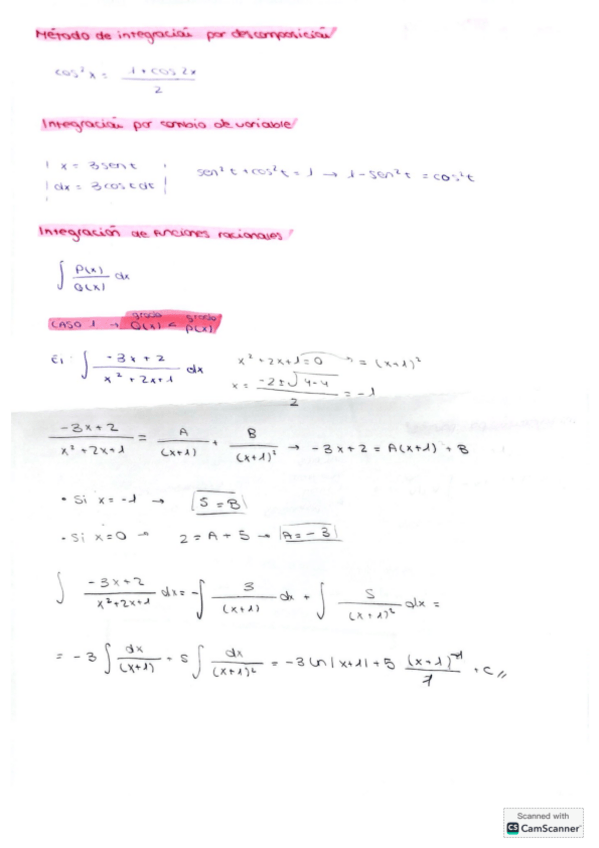 Método de integración por descomposición
cos²x = (1 + cos 2x)/2
Integración por cambio de variable
| x = 3 sen t |
| dx = 3 cos t dt | sen²t + cos²t = 1 → 1 - sen²t = cos²t
Integración de funciones racionales
∫ P(x)/Q(x) dx
CASO 1 → grado Q(x) < grado P(x)
Ej: ∫ (-3x + 2)/(x² + 2x + 1) dx x² + 2x + 1 = 0 → = (x+1)²
x = (-2 ± √(4-4))/2 = -1
(-3x+2)/(x² + 2x+1) = A/(x+1) + B/(x+1)² → -3x + 2 = A(x+1) + B
• Si x = -1 → 5 = B
• Si x = 0 → 2 = A + 5 → A = -3
∫ (-3x+2)/(x²+2x+1) dx = -∫ 3/(x+1) dx + ∫ 5/(x+1)² dx =
= -3 ∫ dx/(x+1) + 5 ∫ dx/(x+1)² = -3 ln|x+1| + 5 + C //
Scanned with
CS CamScanner